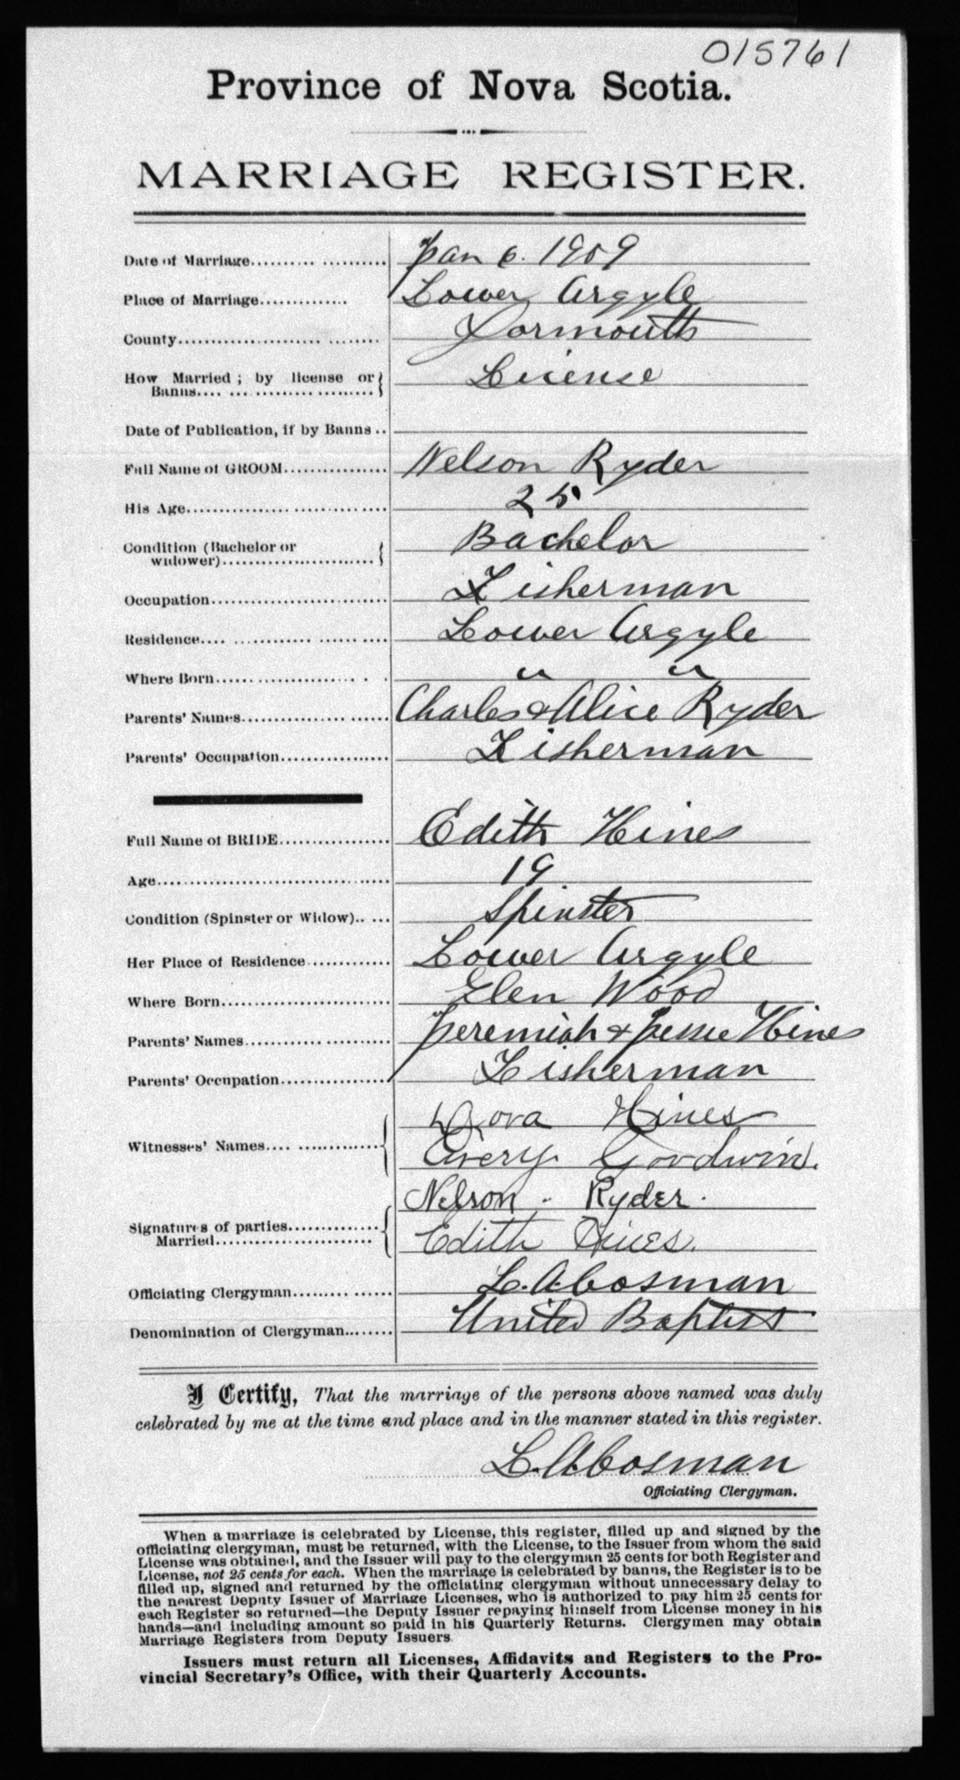 015761
Province of Nova Scotia.
MARRIAGE REGISTER.
Date of Marriage.......... .......... Jan 6. 1909
Place of Marriage............. Lower Argyle
County...................... ........ Yarmouth
How Married; by license or } License
Banns.... ... ......................
Date of Publication, if by Banns ..
Full Name of GROOM................ Nelson Ryder
His Age................................ 25
Condition (Bachelor or } Bachelor
widower)........................
Occupation............................ Fisherman
Residence.... .............. ...... .... Lower Argyle
Where Born....................... . . " "
Parents' Names...................... Charles & Alice Ryder
Parents' Occupation................. Fisherman
Full Name of BRIDE................. Edith Hines
Age.................................... 19
Condition (Spinster or Widow).. ... Spinster
Her Place of Residence ............ Lower Argyle
Where Born.......................... Glen Wood
Parents' Names...................... Jeremiah & Jessie Hines
Parents' Occupation................. Fisherman
Witnesses' Names.... .............. { Dora Hines
Avery Goodwin.
Signatures of parties............... { Nelson. Ryder.
Married......................... Edith Hines.
Officiating Clergyman......... ...... L. A. Cosman
Denomination of Clergyman........ United Baptist
I Certify, That the marriage of the persons above named was duly
celebrated by me at the time and place and in the manner stated in this register.
L. A. Cosman
Officiating Clergyman.
When a marriage is celebrated by License, this register, filled up and signed by the
officiating clergyman, must be returned, with the License, to the Issuer from whom the said
License was obtained, and the Issuer will pay to the clergyman 25 cents for both Register and
License, not 25 cents for each. When the marriage is celebrated by banns, the Register is to be
filled up, signed and returned by the officiating clergyman without unnecessary delay to
the nearest Deputy Issuer of Marriage Licenses, who is authorized to pay him 25 cents for
each Register so returned—the Deputy Issuer repaying himself from License money in his
hands—and including amount so paid in his Quarterly Returns. Clergymen may obtain
Marriage Registers from Deputy Issuers
Issuers must return all Licenses, Affidavits and Registers to the Pro-
vincial Secretary's Office, with their Quarterly Accounts.